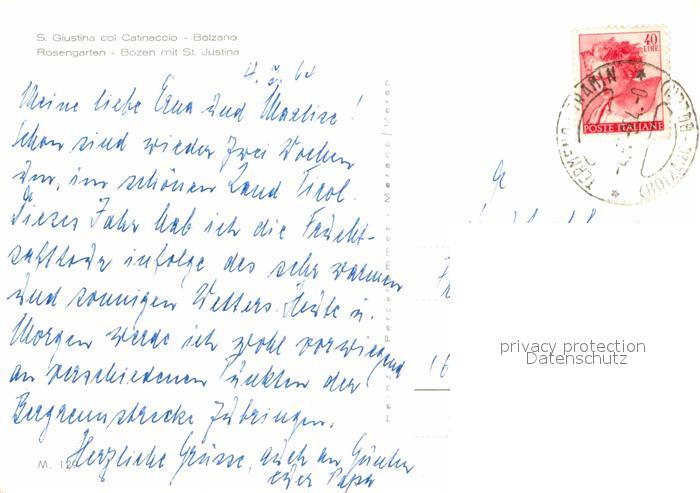 S. Giustina col Catinaccio - Bolzano
Rosengarten - Bozen mit St. Justina
Meine liebe Erna und Marlise!
Schon sind wieder zwei Wochen
um, im schönen Land Tirol.
Dieses Jahr hab ich die Frucht-
safttour infolge des sehr warmen
und sonnigen Wetters. Heute u.
Morgen werde ich wohl vorwiegend
an verschiedenen Punkten der
Bergrennstrecke zubringen.
Herzliche Grüsse, auch an Günther
euer Papa
M. 12
Heinz Perckhammer - Merano/Meran
40
LIRE
POSTE ITALIANE
TRAMIN
privacy protection
Datenschutz